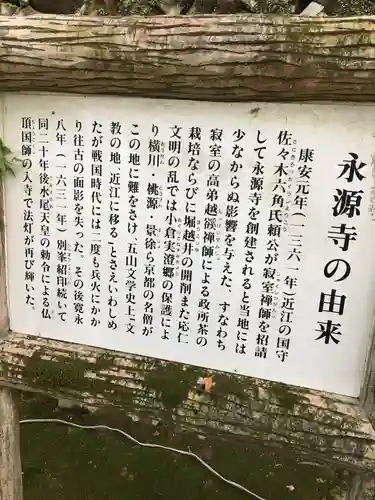 永源寺の由来
康安元年(一三六一年)近江の国守
佐々木六角氏頼公が寂室禅師を招請
して永源寺を創建されると当地には
少なからぬ影響を与えた、すなわち
寂室の高弟越渓禅師による政所茶の
栽培ならびに堀越井の開削また応仁
文明の乱では小倉実澄郷の保護によ
り横川・桃源・景徐ら京都の名僧が
この地に難をさけ「五山文学史上一文
教の地」近江に移る」とさえいわしめ
たが戦国時代には二度も兵火にかか
り往古の面影を失った。その後寛永
八年(一六三一年)別峯紹印続いて
同二十年後水尾天皇の勅令による仏
頂国師の入寺で法灯が再び輝いた。